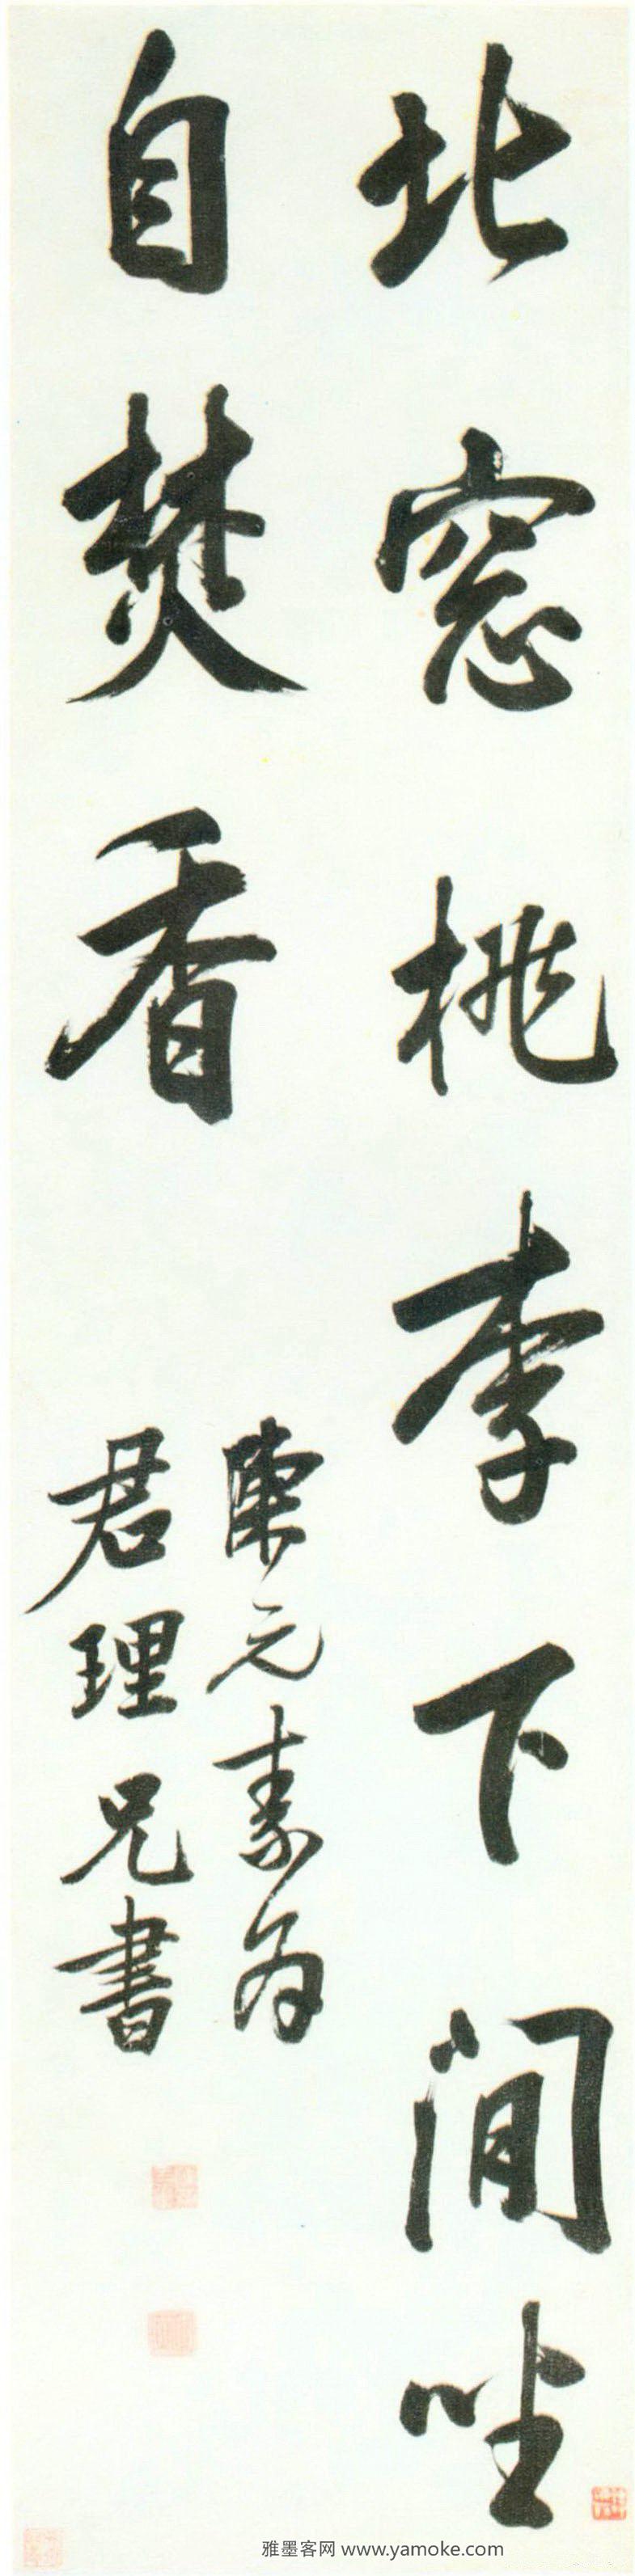 北窓桃李下閒坐
自焚香
陳元素為
君理兄書
雅墨客网 www.yamoke.com